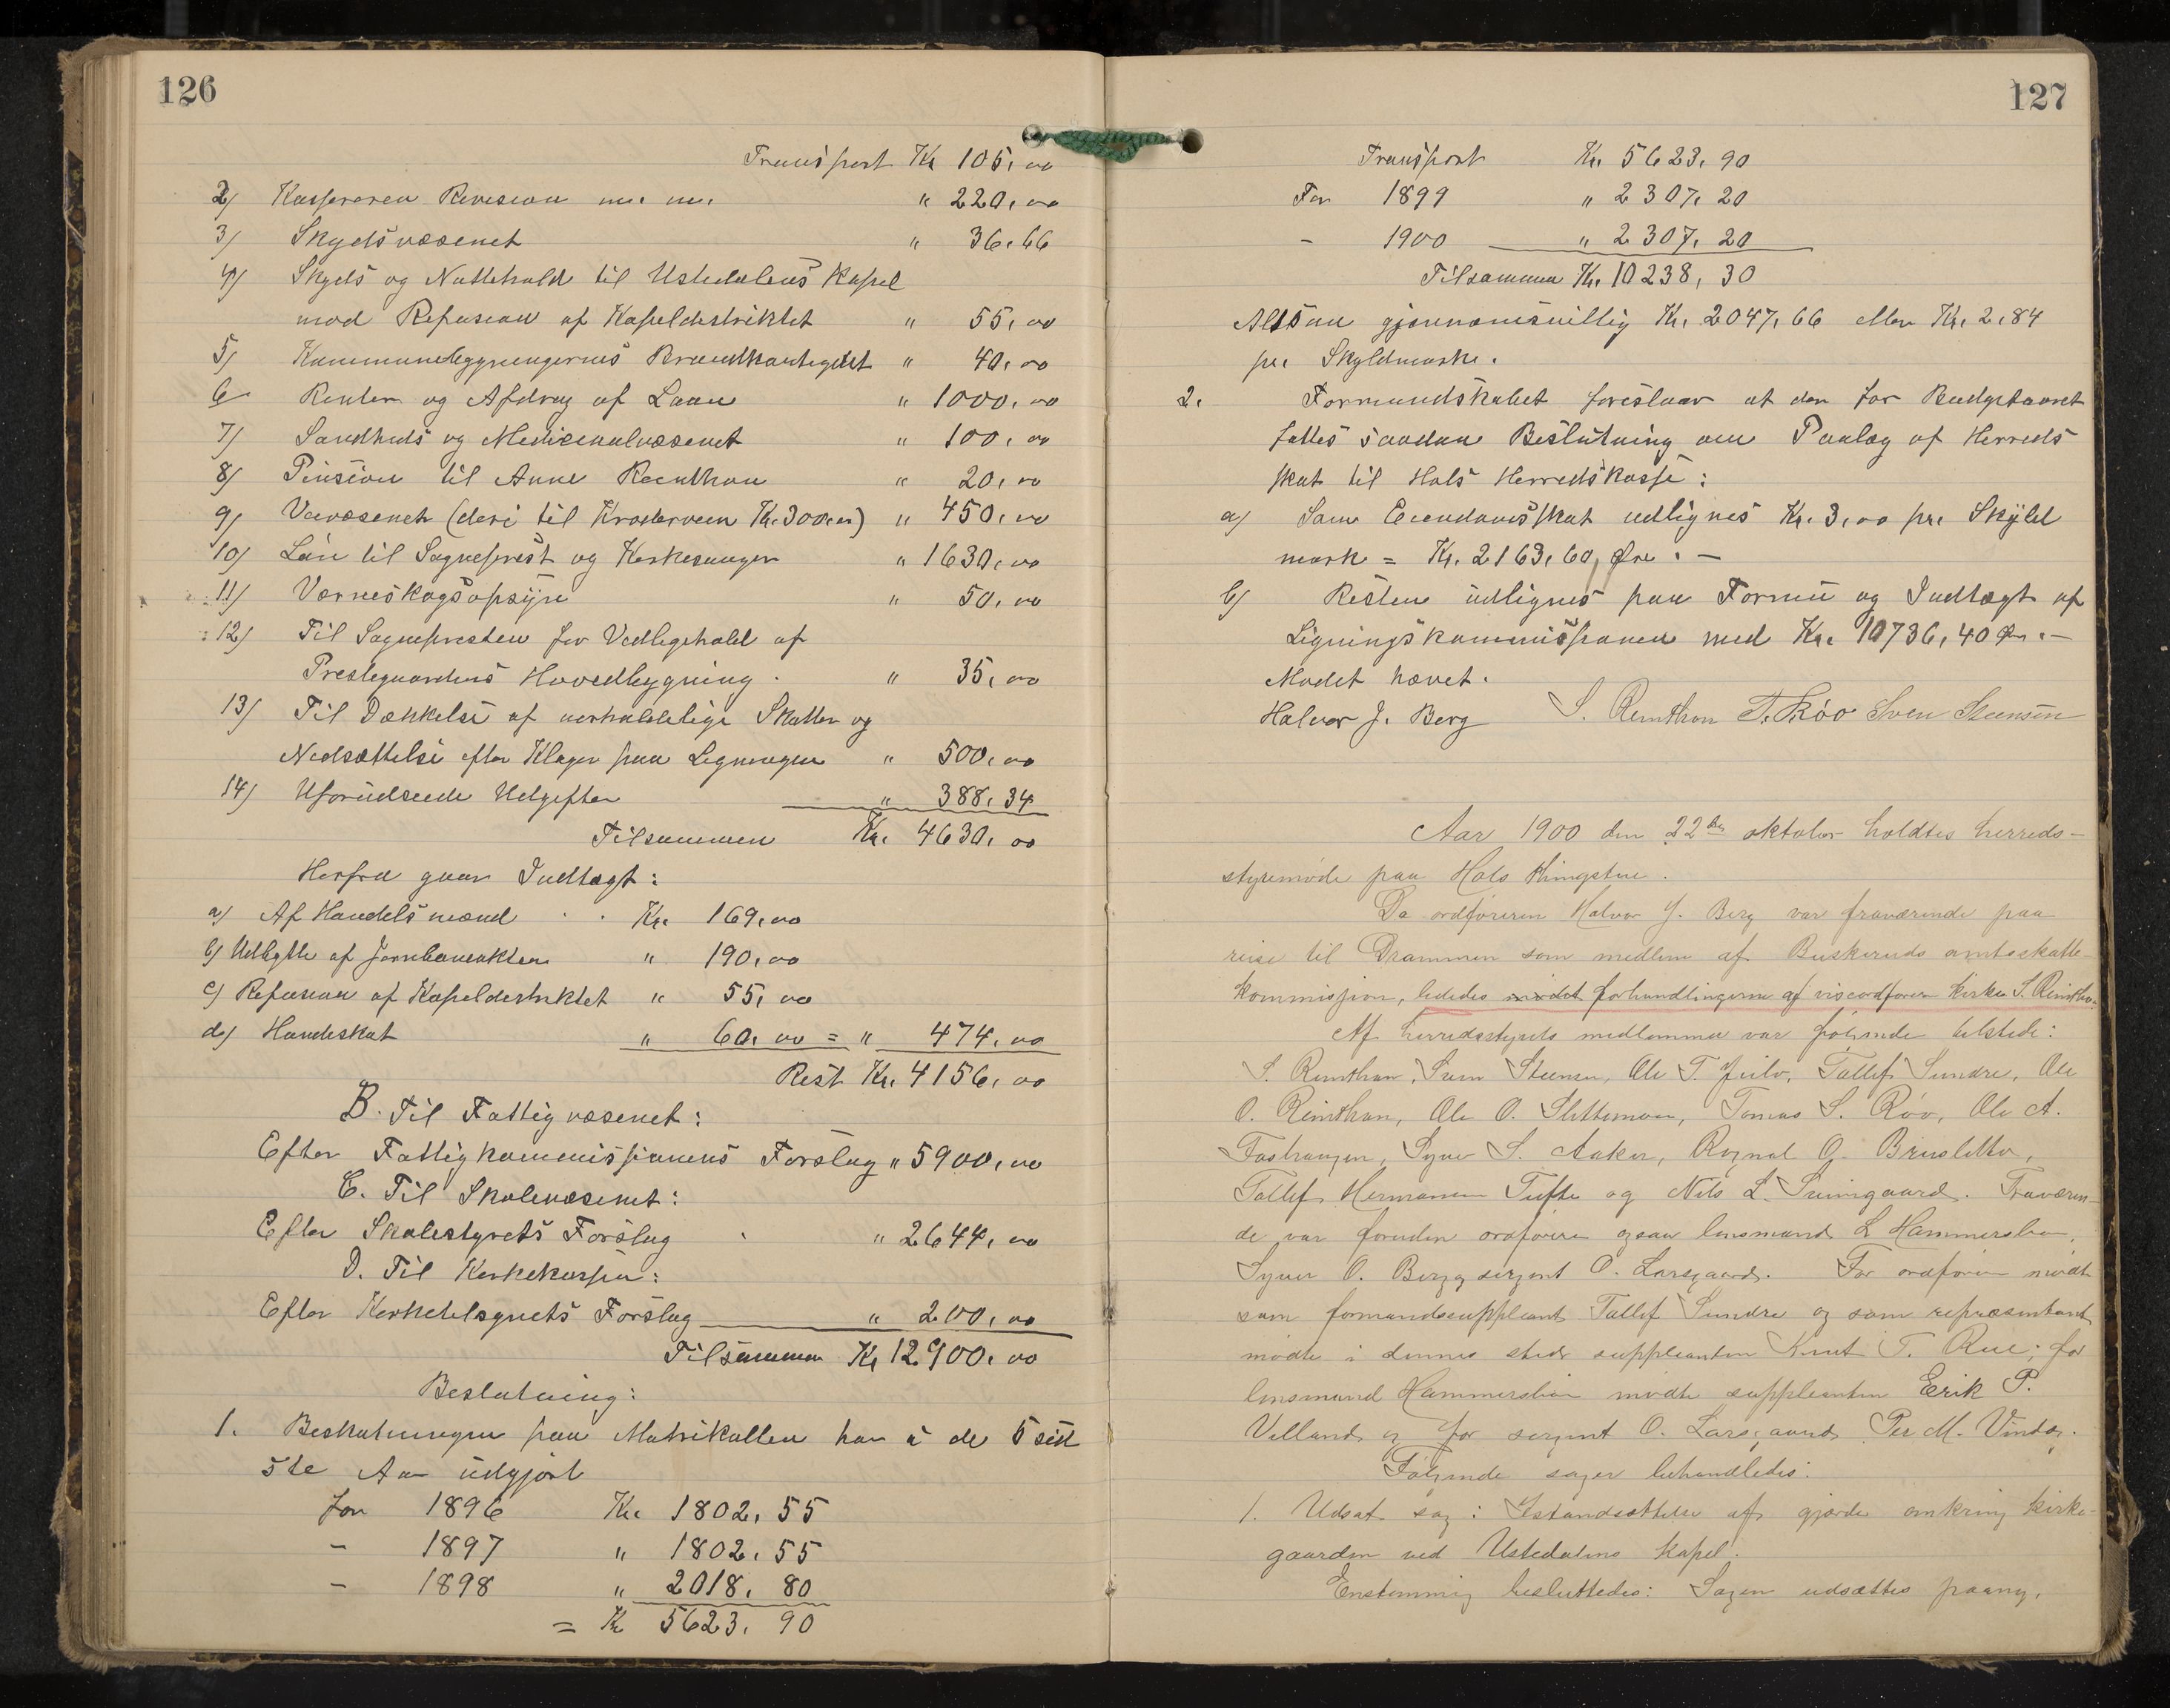 126
Transport Kr 105,00
2) Kassereren Revision m. m. " 220,00
3) Skydsvæsenet " 36,66
4) Skyds og Nattehold til Ustedalens Kapel
mod Refusion af Kapeldistriktet " 55,00
5) Kommunebygningernes Brandkontigent " 40,00
6 Renter og Afdrag af Laan " 1000,00
7) Sundheds og Medicinalvæsenet " 100,00
8) Pension til Anne Reinthon " 20,00
9) Veivæsenet (deri til Kroderveien Kr. 300,00) " 450,00
10) Løn til Sogneprest og Kirkesanger " 1630,00
11) Værneskogsopsyn " 50,00
12) Til Sognepresten for Vedligehold af
Prestegaardens Hovedbygning. " 35,00
13) Til Dækkelse af uerholdelige Skatter og
Nedsættelse efter Klager paa Ligningen " 500,00
14) Uforudseede Udgifter " 388,34
Tilsammen Kr. 4630,00
Herfra gaar Indtægt:
a) Af Handelsmænd Kr. 169,00
b) Udbytte af Jernbaneaktier " 190,00
c) Refusion af Kapeldistriktet " 55,00
d) Hundeskat " 60,00 = " 474,00
Rest Kr. 4156,00
B. Til Fattigvæsenet:
Efter Fattigkommissionens Forslag " 5900,00
C. Til Skolevæsenet:
Efter Skolestyrets Forslag " 2644,00
D. Til Kirkekassen:
Efter Kirketilsynets Forslag " 200,00
Tilsammen Kr 12900,00
Beslutning:
1. Beskatningen paa Matrikullen har i de 5 sid
ste Aar udgjort
for 1896 Kr. 1802,55
- 1897 " 1802,55
- 1898 " 2018,80
= Kr 5623,90
127
Transport Kr. 5623,90
For 1899 " 2307,20
- 1900 " 2307,20
Tilsammen Kr. 10238,30
Altsaa gjennemsnitlig Kr. 2047,66 eller Kr. 2,84
pr. Skyldmark.
2. Formandskabet foreslaar at der for Budgetaaret
fattes saadan Beslutning om Paalæg af Herreds
skat til Hols Herredskasse:
a) Som Eiendomsskat udlignes Kr. 3,00 pr. Skyld
mark = Kr. 2163,60, Øre. -
b) Resten udlignes paa Formue og Indtægt af
Ligningskommissionen med Kr. 10736,40 Øre. -
Mødet hævet.
Halvor J. Berg S. Reinthon T. Røo Sven Steensen
Aar 1900 den 22de oktober holdtes herreds-
styremøde paa Hols thingstue.
Da ordføreren Halvor J. Berg var fraværende paa
reise til Drammen som medlem af Buskeruds amtsskatte-
kommission, lededes mødet forhandlingerne af viceordfører kirkes. S. Reinthon.
Af herredsstyrets medlemmer var følgende tilstede:
S. Reinthon, Sven Steensen, Ole T. Geilo, Tollef Sundre, Ole
O. Reinthon, Ole O. Slettemoen, Tomas S. Røo, Ole A.
Fossgaarden, Syver S. Aaker, Ragnal O. Brusletto,
Tollef Hermansen Tufte og Nils L. Sveingaard. Fraværen-
de var foruden ordfører ogsaa lensmand L Hammersbøen,
Syver O. Berg og sergent O. Larsgaard. For ordfører mødte
som formandssuppleant Tollef Sundre og som repræsentant
mødte i dennes sted suppleanten Knut T. Rue; for
lensmand Hammersbøen mødte suppleanten Erik P.
Villand og for sergent O. Larsgaard Per M. Vindeg.
Følgende sager behandledes:
1. Udsat sag: Istandsættelse af gjærde omkring kirke-
gaarden ved Ustedalens kapel.
Enstemmig besluttedes: Sagen udsættes paany.